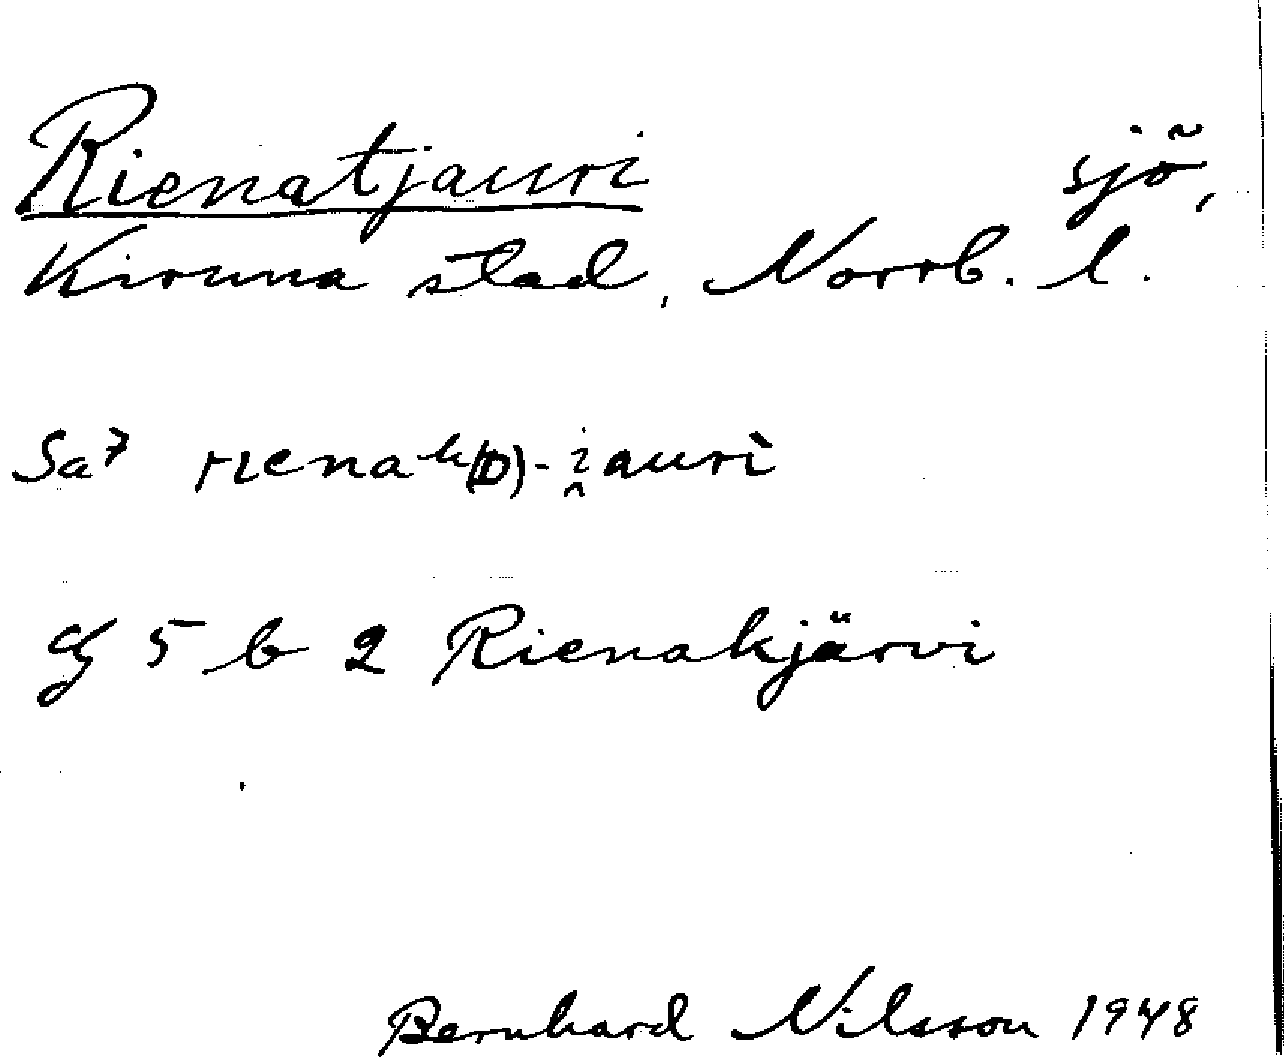 Rienatjauri sjö,
Kiruna stad, Norrb. l.
Sa7 riena k(D)-i̯auri
5 b 2 Rienakjärvi
Bernhard Nilsson 1948